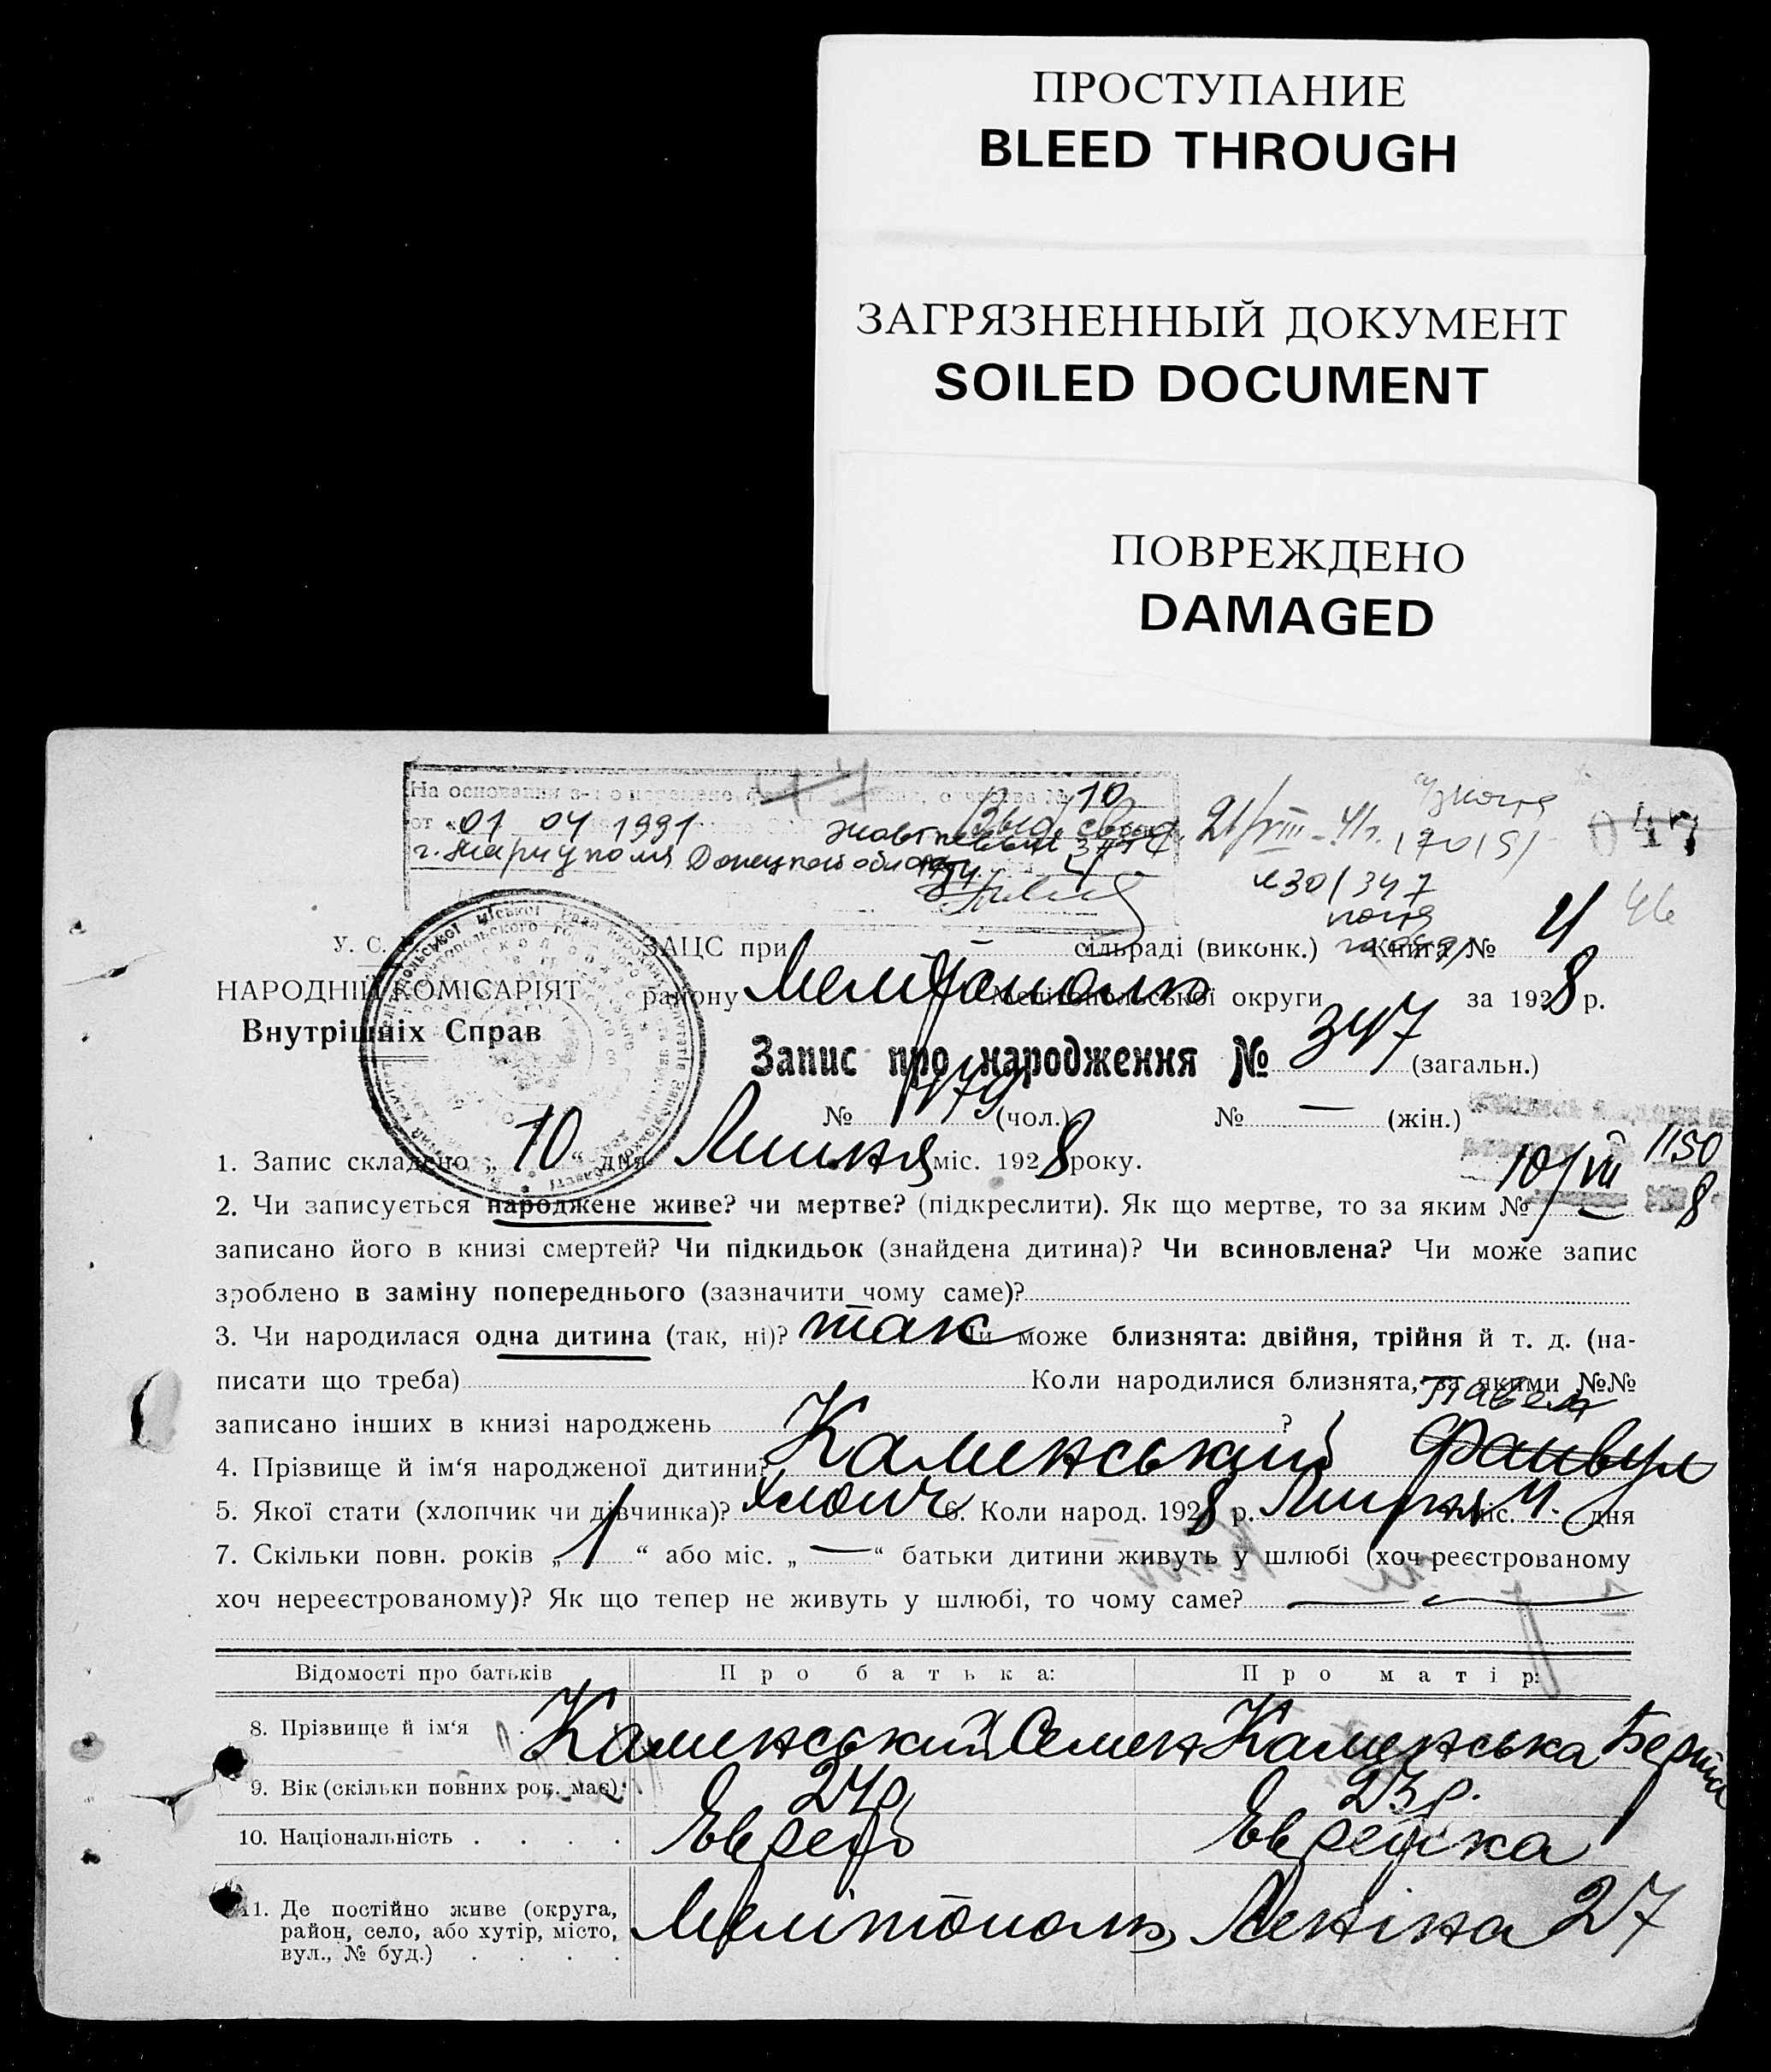 ПРОСТУПАНИЕ
BLEED THROUGH
ЗАГРЯЗНЕННЫЙ ДОКУМЕНТ
SOILED DOCUMENT
ПОВРЕЖДЕНО
DAMAGED
На основании 10
от «01 04 1991
г. Мариуполя Донецкой
21/VIII-41г.
047
№30/347
46
У. С.
ЗАЦС при сільраді (виконк.) Книга № 4
НАРОДНІЙ КОМІСАРІЯТ
району Мелітополь Мелітопольської округи за 1928 р.
Внутрішніх Справ
Запис про народження № 347 (загальн.)
№ 179 (чол.) № — (жін.)
1150
1. Запис складено „10“ дня Липня міс. 1928 року.
10/VII 8
2. Чи записується народжене живе? чи мертве? (підкреслити). Як що мертве, то за яким № —
записано його в книзі смертей? Чи підкидьок (знайдена дитина)? Чи всиновлена? Чи може запис
зроблено в заміну попереднього (зазначити чому саме)?
3. Чи народилася одна дитина (так, ні)? так Чи може близнята: двійня, трійня й т. д. (на-
писати що треба) Коли народилися близнята, за якими №№
Павел
записано інших в книзі народжень ?
4. Прізвище й ім‘я народженої дитини? Каменський Файвул
5. Якої стати (хлопчик чи дівчинка)? Хлопч 6. Коли народ. 1928 р. Липня міс. 4 дня
7. Скільки повн. років „1“ або міс. „—“ батьки дитини живуть у шлюбі (хоч реєстрованому
хоч нереєстрованому)? Як що тепер не живуть у шлюбі, то чому саме? — —
Відомості про батьків Про батька: Про матір:
8. Прізвище й ім‘я Каменський Семен Каменська Берта
9. Вік (скільки повних рок. має) 24р. 23р.
10. Національність . . . . Еврей Еврейка
11. Де постійно живе (округа,
район, село, або хутір, місто,
вул., № буд.) . . . . Мелітополь Леніна 27